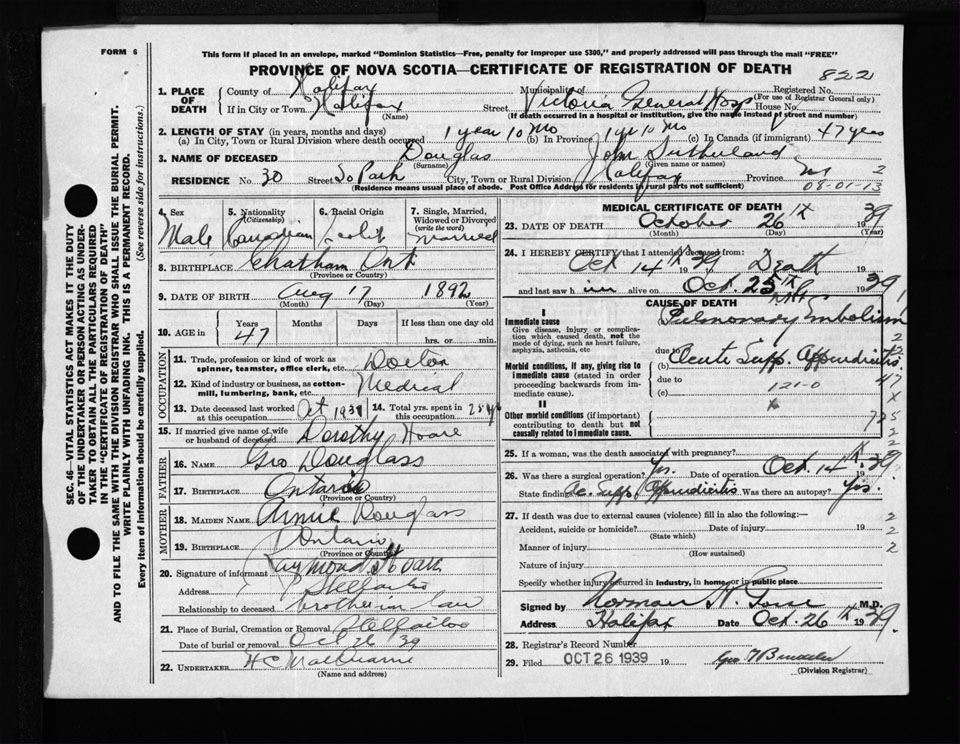 FORM 6
This form if placed in an envelope, marked "Dominion Statistics—Free, penalty for improper use $300," and properly addressed will pass through the mail "FREE"
PROVINCE OF NOVA SCOTIA—CERTIFICATE OF REGISTRATION OF DEATH
822
1. PLACE OF DEATH
County of Halifax
Municipality of
Registered No.
(For use of Registrar General only)
If in City or Town Halifax
(Name)
Street Victoria General Hosp House No.
(If death occurred in a hospital or institution, give the name instead of street and number)
2. LENGTH OF STAY (in years, months and days)
(a) In City, Town or Rural Division where death occurred 1 year 10 Mo (b) In Province 1 yr 10 Mo (c) In Canada (if immigrant) 47 years
3. NAME OF DECEASED Douglas John Sutherland
(Surname) (Given name or names)
RESIDENCE No. 30 Street So Park City, Town or Rural Division Halifax Province NS 2
(Residence means usual place of abode. Post Office Address for residents in rural parts not sufficient)
08-01-13
4. Sex
Male
5. Nationality (Citizenship)
Canadian
6. Racial Origin
7. Single, Married, Widowed or Divorced (write the word)
Married
8. BIRTHPLACE Chatham Ont
(Province or Country)
9. DATE OF BIRTH Aug 17 1892
(Month) (Day) (Year)
10. AGE in
Years Months Days If less than one day
47 hrs. or min.
OCCUPATION
11. Trade, profession or kind of work as spinner, teamster, office clerk, etc. Doctor
12. Kind of industry or business, as cotton-mill, lumbering, bank, etc. Medical
13. Date deceased last worked at this occupation Oct 1939
14. Total yrs. spent in this occupation
15. If married give name of wife or husband of deceased Dorothy Hoare
FATHER
16. NAME Geo Douglass
17. BIRTHPLACE Ontario
(Province or Country)
MOTHER
18. MAIDEN NAME Annie Douglass
19. BIRTHPLACE Ontario
(Province or Country)
20. Signature of informant Raymond
Address
Relationship to deceased brother in law
21. Place of Burial, Cremation or Removal
Date of burial or removal Oct 26 39
22. UNDERTAKER
(Name and address)
MEDICAL CERTIFICATE OF DEATH
23. DATE OF DEATH October 26th 1939
(Month) (Day) (Year)
24. I HEREBY CERTIFY that I attended deceased from:
Oct 14th 1939 to Death 19
and last saw him alive on Oct. 25th 1939
CAUSE OF DEATH
I
Immediate cause
Give disease, injury or complication which caused death, not the mode of dying, such as heart failure, asphyxia, asthenia, etc
Pulmonary Embolism
due to
(b) Acute Supp. Appendicitis
Morbid conditions, if any, giving rise to immediate cause (stated in order proceeding backwards from immediate cause).
due to
(c)
121-0
x
II
Other morbid conditions (if important) contributing to death but not causally related to immediate cause.
25. If a woman, was the death associated with pregnancy?
26. Was there a surgical operation? Yes. Date of operation Oct. 14th 1939
State findings Ac. supp. Appendicitis Was there an autopsy? Yes.
27. If death was due to external causes (violence) fill in also the following:—
Accident, suicide or homicide? Date of injury 19
(State which)
Manner of injury
(How sustained)
Nature of injury
Specify whether injury occurred in industry, in home, or in public place
Signed by Norman H. M.D.
Address Halifax Date Oct. 26th 1939
28. Registrar's Record Number
29. Filed OCT 26 1939 19
(Division Registrar)
SEC. 46—VITAL STATISTICS ACT MAKES IT THE DUTY
OF THE UNDERTAKER OR PERSON ACTING AS UNDER-
TAKER TO OBTAIN ALL THE PARTICULARS REQUIRED
IN THE "CERTIFICATE OF REGISTRATION OF DEATH"
AND TO FILE THE SAME WITH THE DIVISION REGISTRAR WHO SHALL ISSUE THE BURIAL PERMIT.
WRITE PLAINLY WITH UNFADING INK. THIS IS A PERMANENT RECORD.
Every item of information should be carefully supplied. (See reverse side for instructions.)